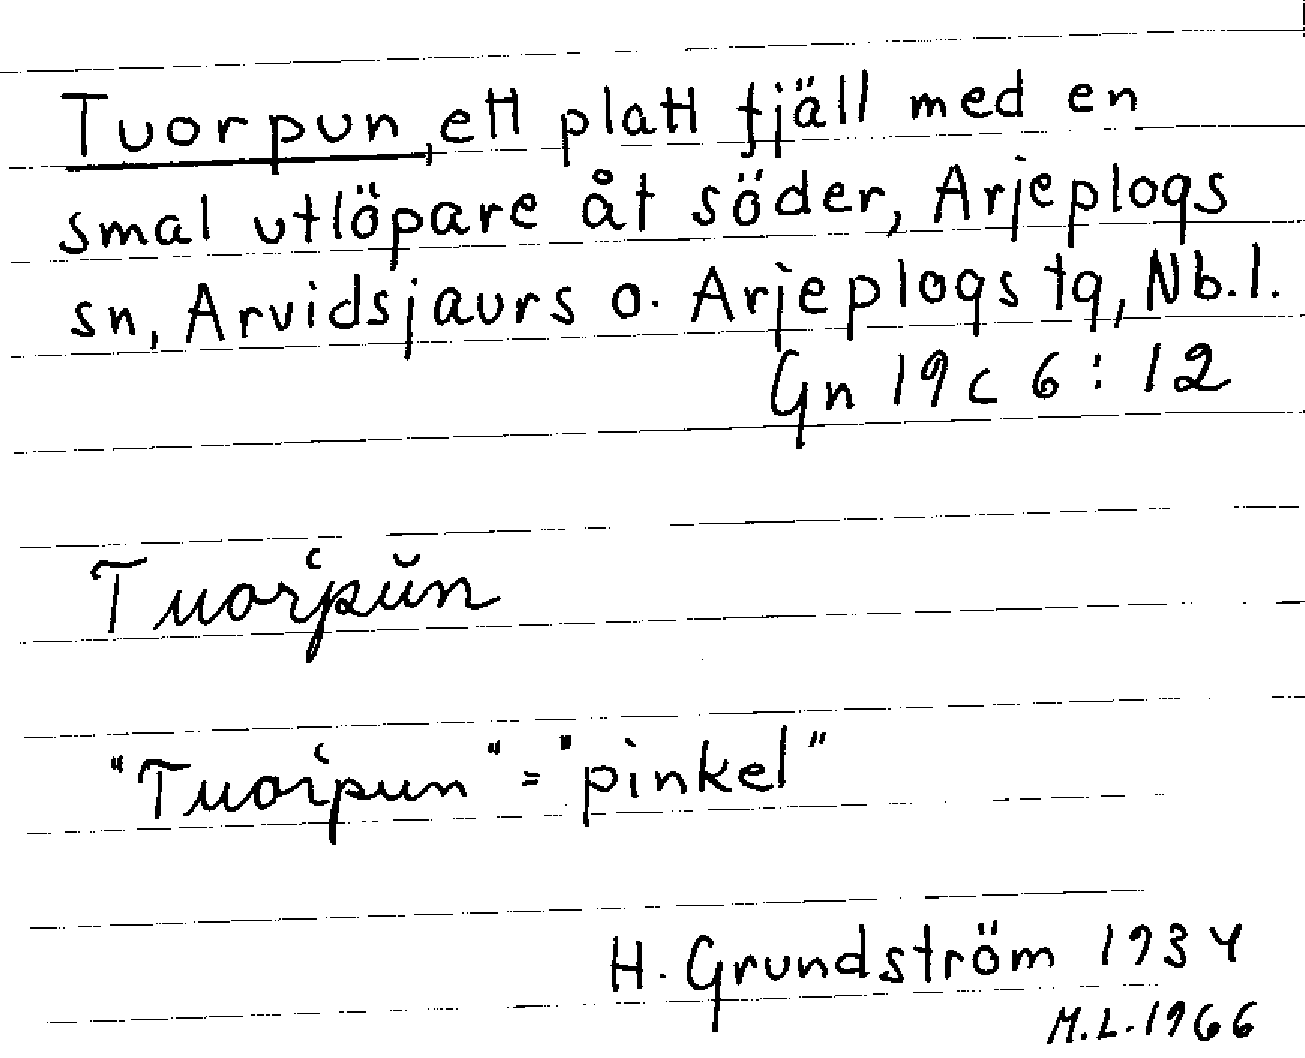 Tuorpun, ett platt fjäll med en
smal utlöpare åt söder, Arjeplogs
sn, Arvidsjaurs o. Arjeplogs tg, Nb.l.
Gn 19c 6:12
Tuorʻpŭn
"Tuorʻpun" = "pinkel"
H. Grundström 1934
M.L. 1966